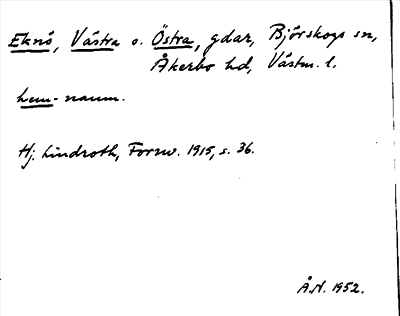 Eknö, Västra o. Östra, gdar, Björskogs sn,
Åkerbo hd, Västm. l.
hem-namn.
Hj. Lindroth, Fornv. 1915, s. 36.
Å.N. 1952.